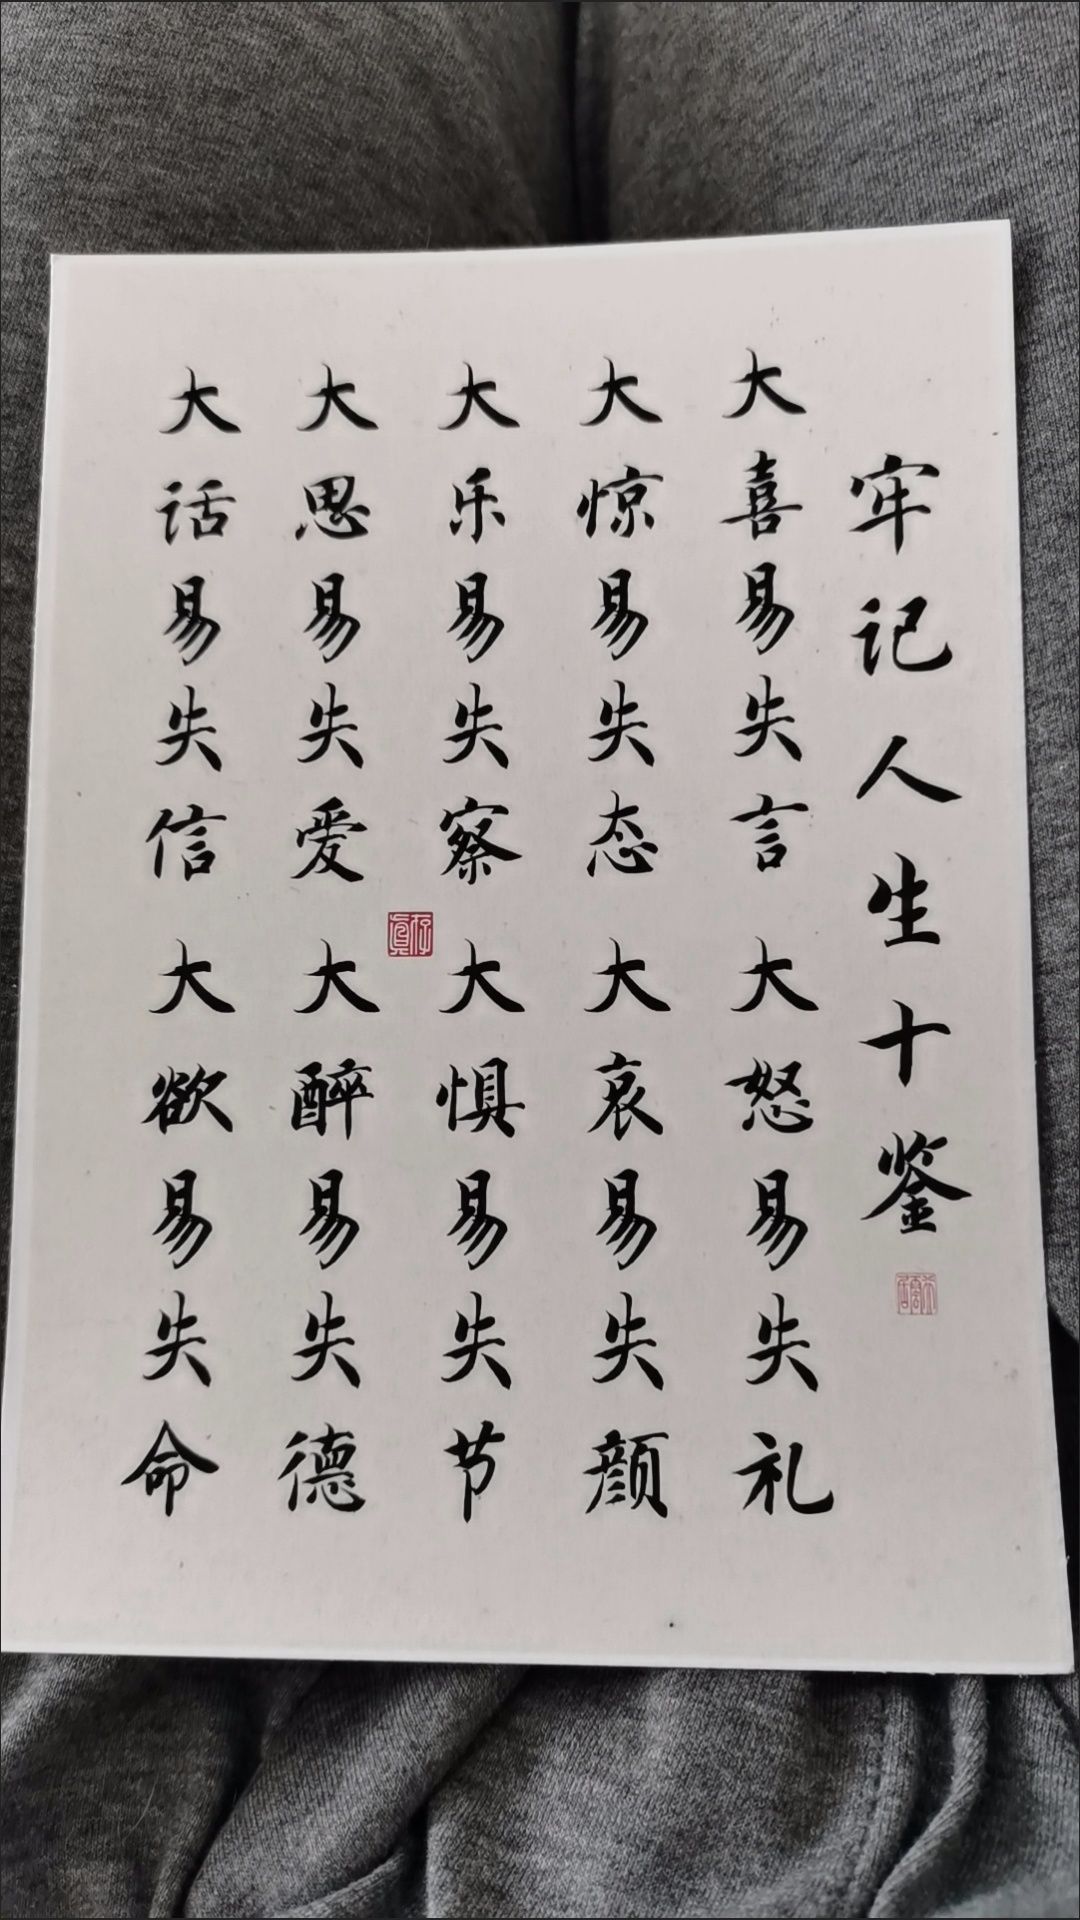 牢记人生十鉴
大喜易失言大怒易失礼
大惊易失态大哀易失颜
大乐易失察大惧易失节
大思易失爱大醉易失德
大话易失信大欲易失命